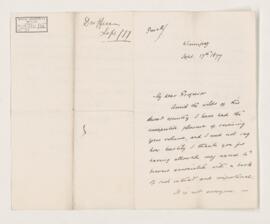 Dufferin
Sept/77
Private/
Winnipeg
Sept. 17th 1877
My dear Professor
Amid the wilds of this
desert country I have had the
unexpected pleasure of receiving
your volume, and I need not say
how heartily I thank you for
having allowed my name to
become associated with a book
of such interest and importance.
It is not everyone —